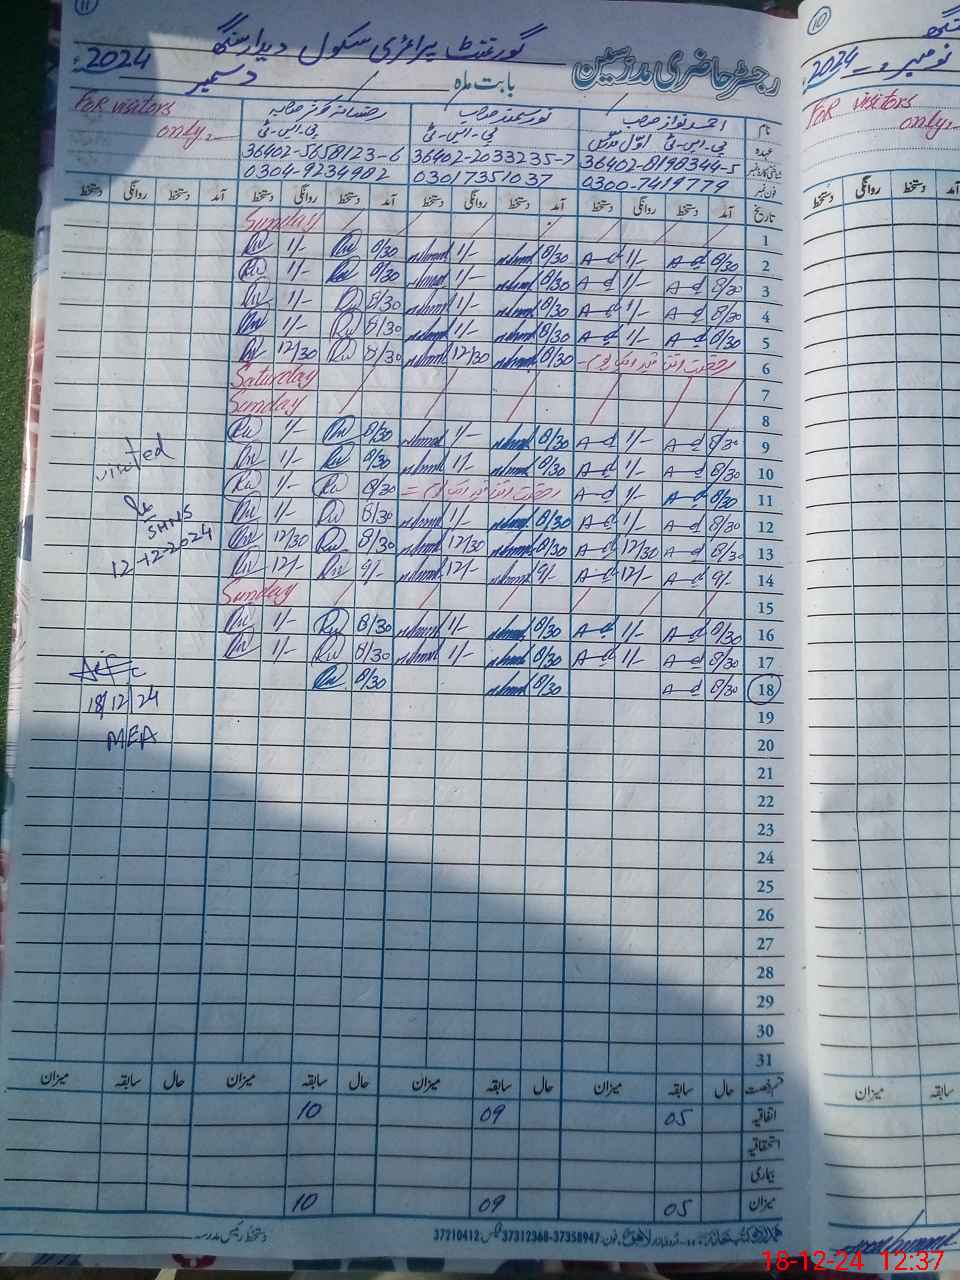 11
گورنمنٹ پرائمری سکول دیدار سنگھ
رجسٹر حاضری مدرسین بابت ماہ دسمبر 2024ء
نام احمد نواز صاحب
عہدہ پی۔ایس۔ٹی اوّل مدرس پی۔ایس۔ٹی پی۔ایس۔ٹی
For visitors
only:-
36402-8198344-5 36402-2033235-7 36402-5658123-6
فون نمبر 0300-7419779 03017351037 0304-9234982
تاریخ آمد دستخط روانگی دستخط آمد دستخط روانگی دستخط آمد دستخط روانگی دستخط آمد دستخط روانگی دستخط
1 Sunday
2 8/30 A-d 1/- A-d 8/30 1/- 8/30 1/-
3 8/30 A-d 1/- A-d 8/30 1/- 8/30 1/-
4 8/30 A-d 1/- A-d 8/30 1/- 8/30 1/-
5 8/30 A-d 1/- A-d 8/30 1/- 8/30 1/-
6 8/30 12/30 8/30 12/30
7 Saturday
8 Sunday
9 8/30 A-d 1/- A-d 8/30 1/- 8/30 1/-
10 8/30 A-d 1/- A-d 8/30 1/- 8/30 1/-
11 8/30 A-d 1/- A-d 8/30 1/-
12 8/30 A-d 1/- A-d 8/30 1/- 8/30 1/-
13 8/30 A-d 12/30 A-d 8/30 12/30 8/30 12/30
14 9/- A-d 12/- A-d 9/- 12/- 9/- 12/-
15 Sunday
16 8/30 A-d 1/- A-d 8/30 1/- 8/30 1/-
17 8/30 A-d 1/- A-d 8/30 1/- 8/30 1/-
18 8/30 A-d 8/30 8/30
19
20
21
22
23
24
25
26
27
28
29
30
31
visited
SHNS
12-12-2024
18/12/24
MEA
قسم رخصت حال سابقہ میزان حال سابقہ میزان حال سابقہ میزان حال سابقہ میزان
اتفاقیہ 05 09 10
استحقاقیہ
بیماری
میزان 05 09 10
دستخط رئیس مدرسہ
فون: 37358947-37312368 فیکس: 37210412
10
نومبر 2024ء
For visitors
only:-
آمد دستخط روانگی دستخط
سابقہ میزان
18-12-24 12:37